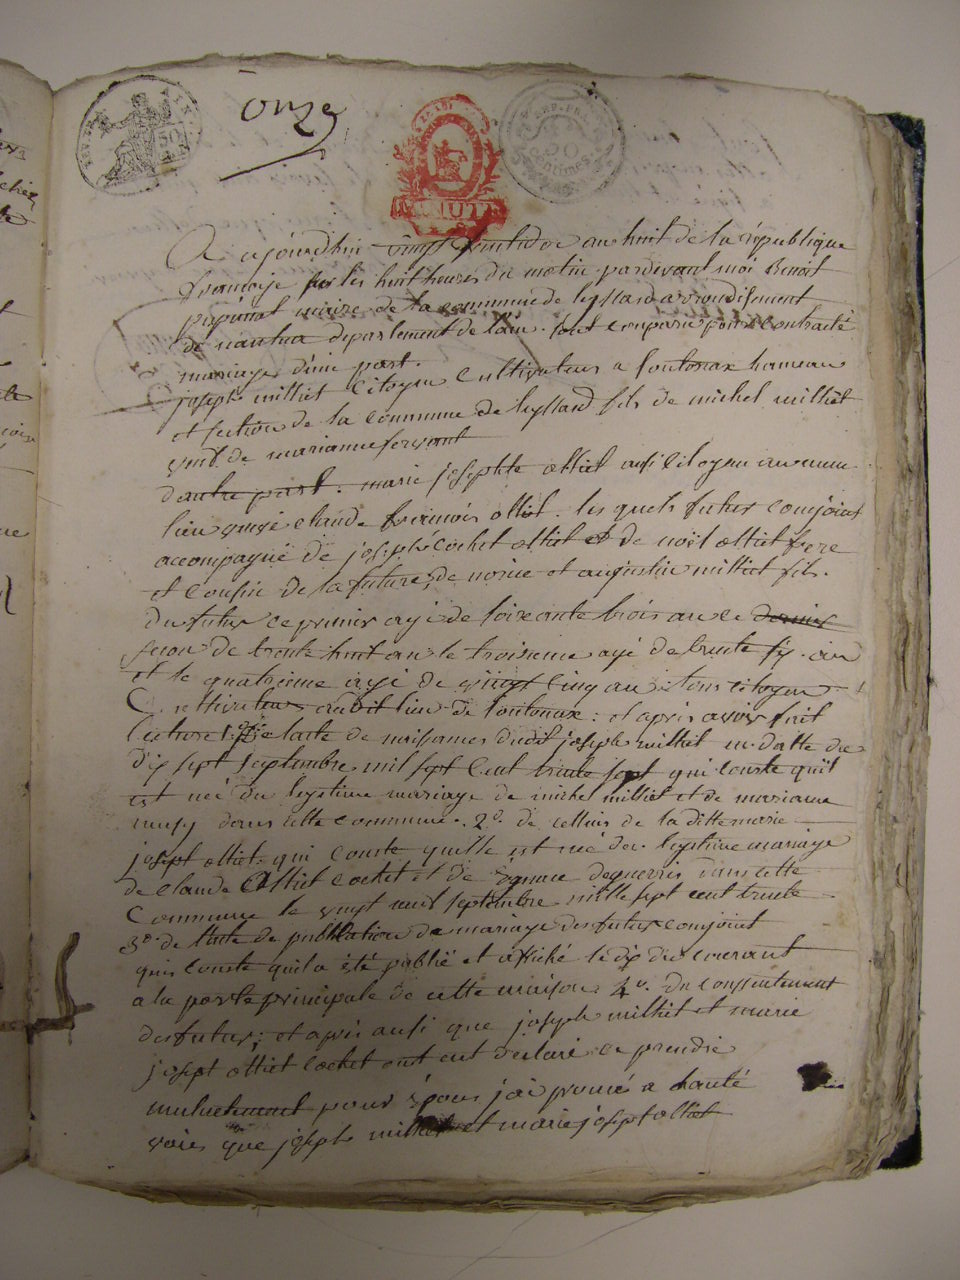 onze
MINUTE
REP. FRA.
50
centimes
Aujourdhui vingt ventidose an huit de la république
françoise les huit heures du matin pardevant moi Benoit
maire de la commune de leyssard arrondisement
de nantua departement de lain. sont comparu pour contracté
mariage d'une part.
joseph milliet citoyen cultivateur a soutonax hameau
et section de la commune de leyssard fils de michel milliet
et de marianne
d'autre part. marie josephte ottiet ausi citoyen au meme
lieu claude francois ottiet. les quels futur conjoint
accompagné de joseph cochet ottiet et de noël ottiet frere
et cousin de la future, de et augustin milliet fils.
du futur ce premier agé de soixante trois an le
de trente huit an le troisieme agé de trente six an
et le quatrieme agé de vingt cinq an tous citoyen
Cultivateur audit lieu de soutonax : et apres avoir fait
lecture de lacte de naissance dudit joseph milliet en datte du
dix sept septembre mil sept cent trente sept qui conste quil
est né du legitime mariage de michel milliet et de mariane
dans cette commune. 2º. de celluis de la ditte marie
joseph ottiet qui conste quelle est née du legitime mariage
de claude Ottiet cochet et de dans cette
Commune le vingt neuf septembre mille sept cent trente
3º. de l'acte de publication de mariage des futur conjoint
qui conste quil a été publié et affiché le dix du courant
a la porte principale de cette maison 4º. du consentement
des futur; et apres ausi que joseph milliet et marie
josept ottiet cochet ont eut declaré ce prendre
mutuelement pour époux jai prononcé a hauté
voix que joseph milliet et marie josept ottiet